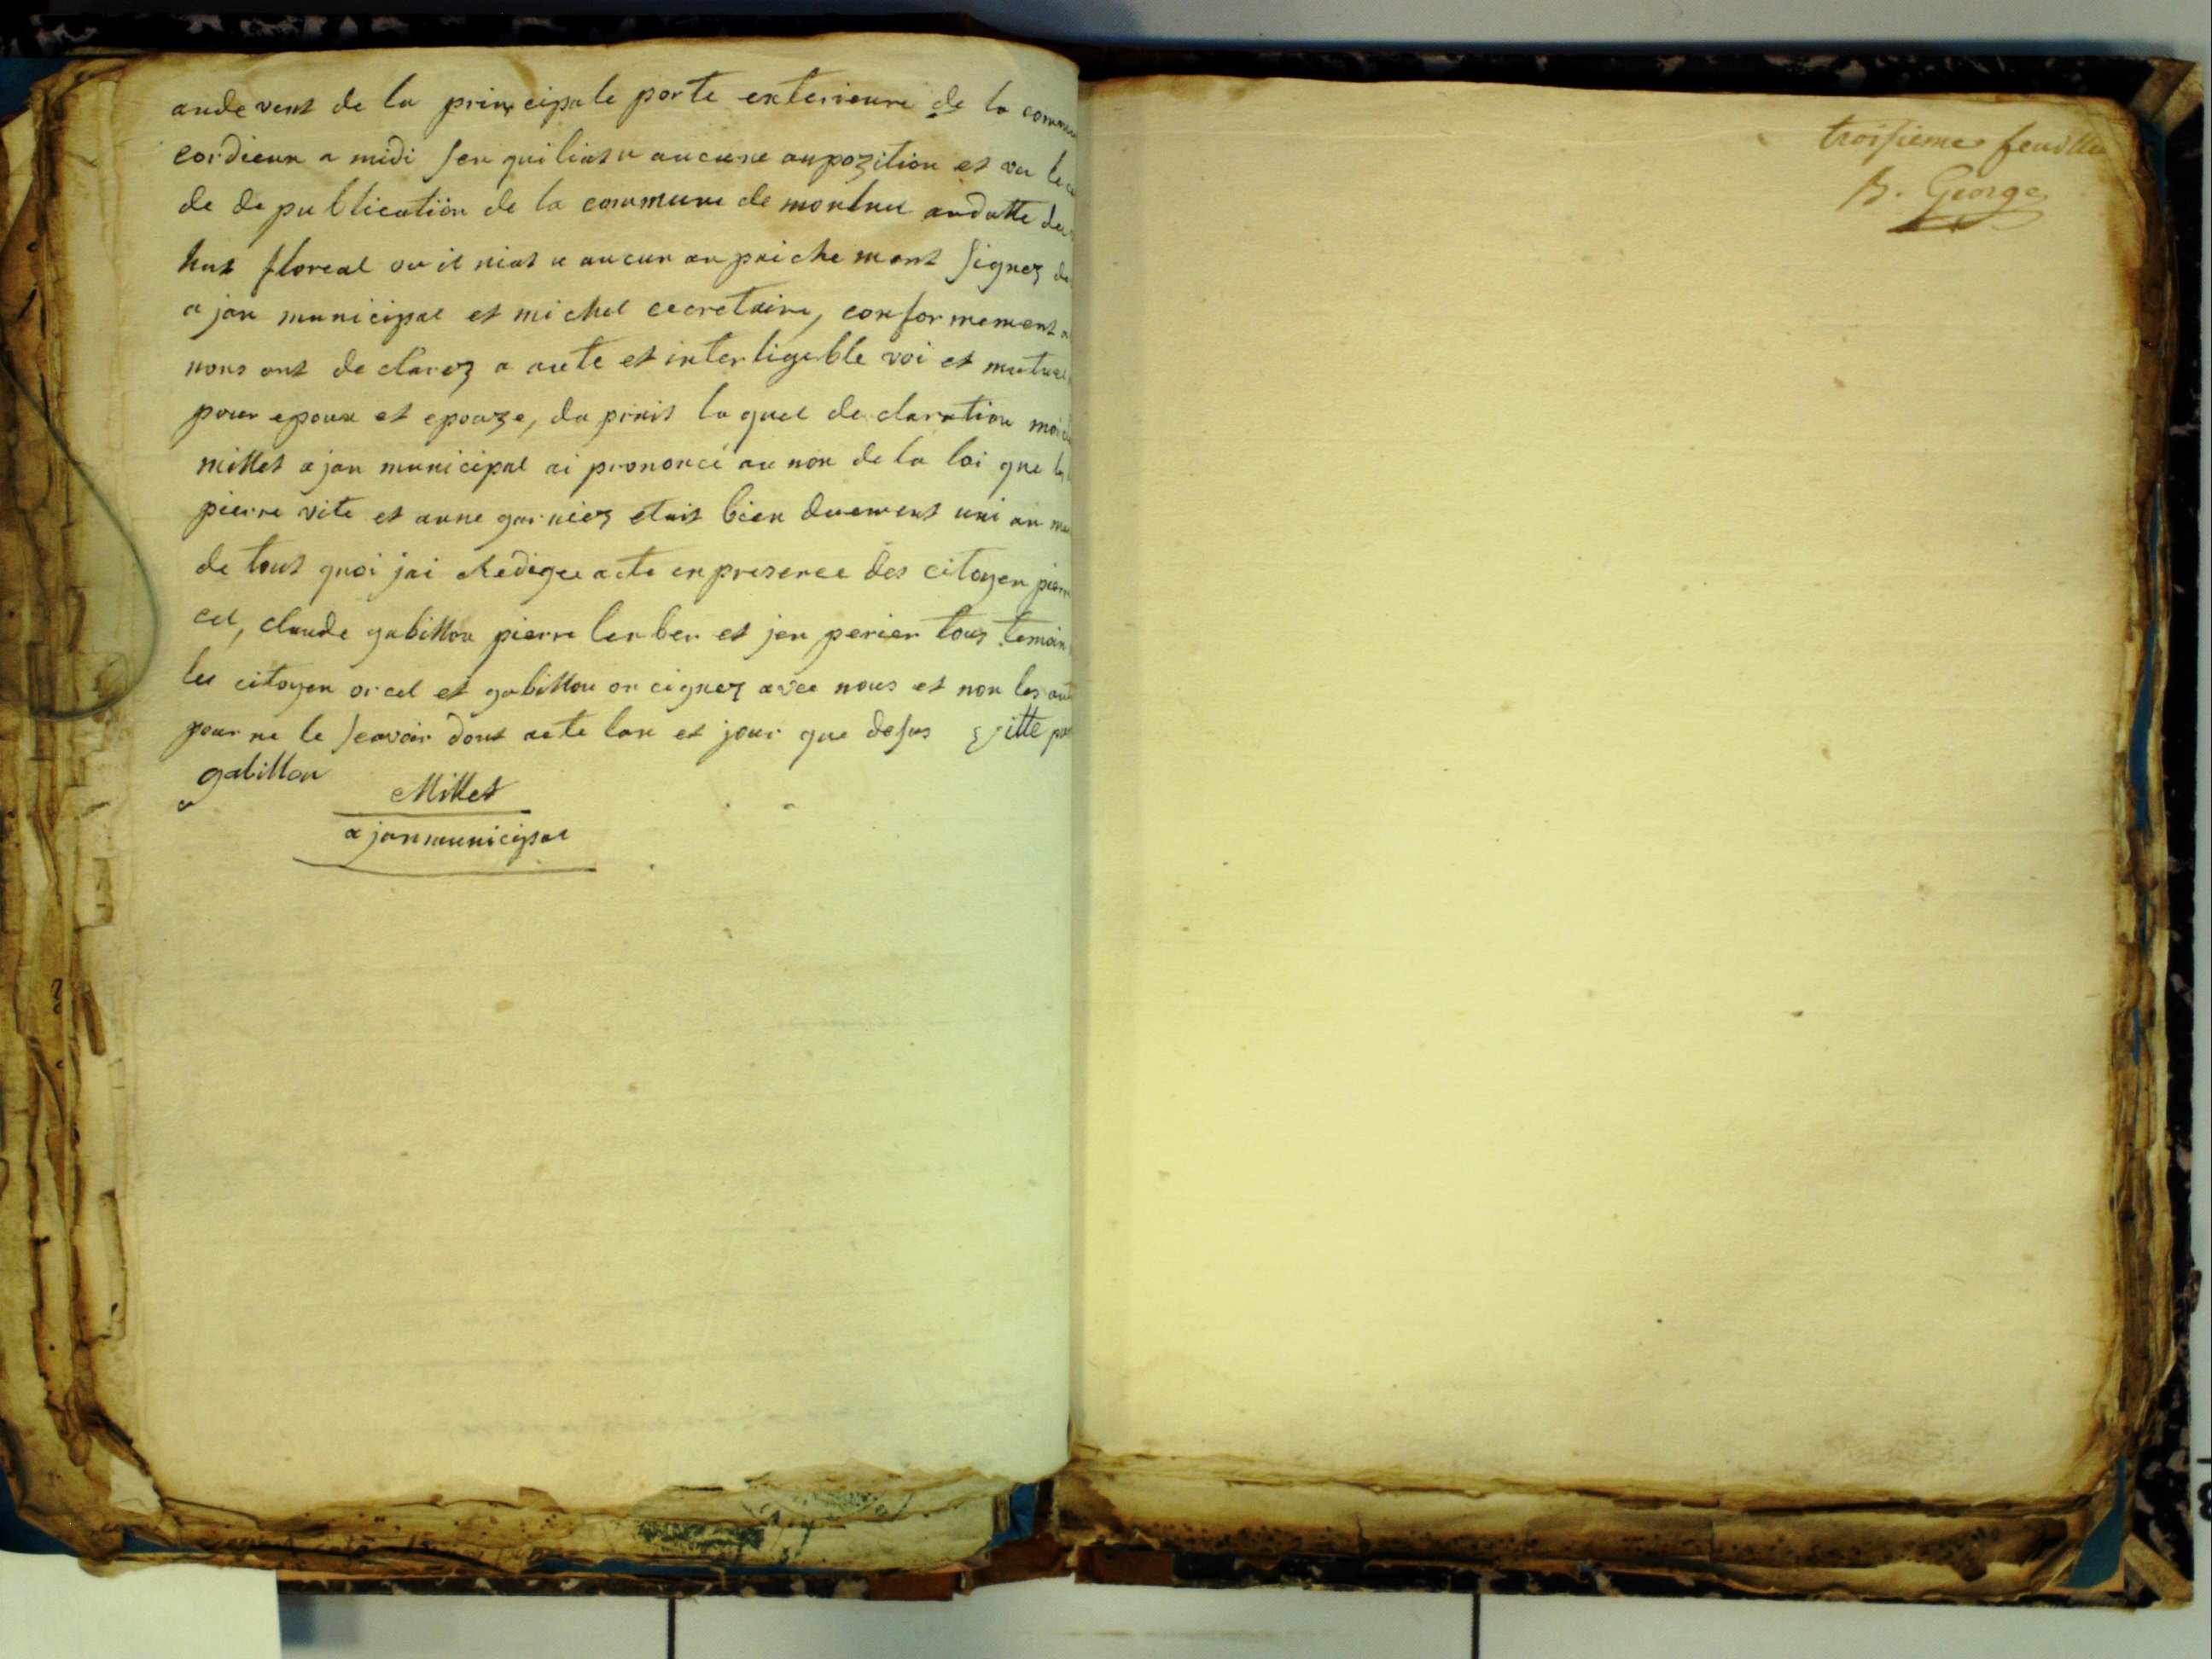 andevent de la principale porte exterieure de la
cordieux a midi sen quiliatu aucune aupozition et vu
de de publication de la commune de monluel andatte
huit floreal ou il niat u aucun anpaichemant signez
ajan municipal et michel cecretaire, conformement
nous ont declarez a aute et interligible voi et
pour epoux et epouze, da prais la quel declaration
millet ajan municipal ai prononcé au non de la loi que
pierre vite et anne garniez etait bien duement uni an
de tout quoi jai Redigee acte enpresence des citoyen
cel, claude gabillon pierre berber et jen perier tous temoin
les citoyen orcel et gabillon on cignez avec nous et non les
pour ne le scavoir dont acte lan et jour que desus vitte
gabillon
Millet
ajanmunicipal
troisieme feuille
B. George